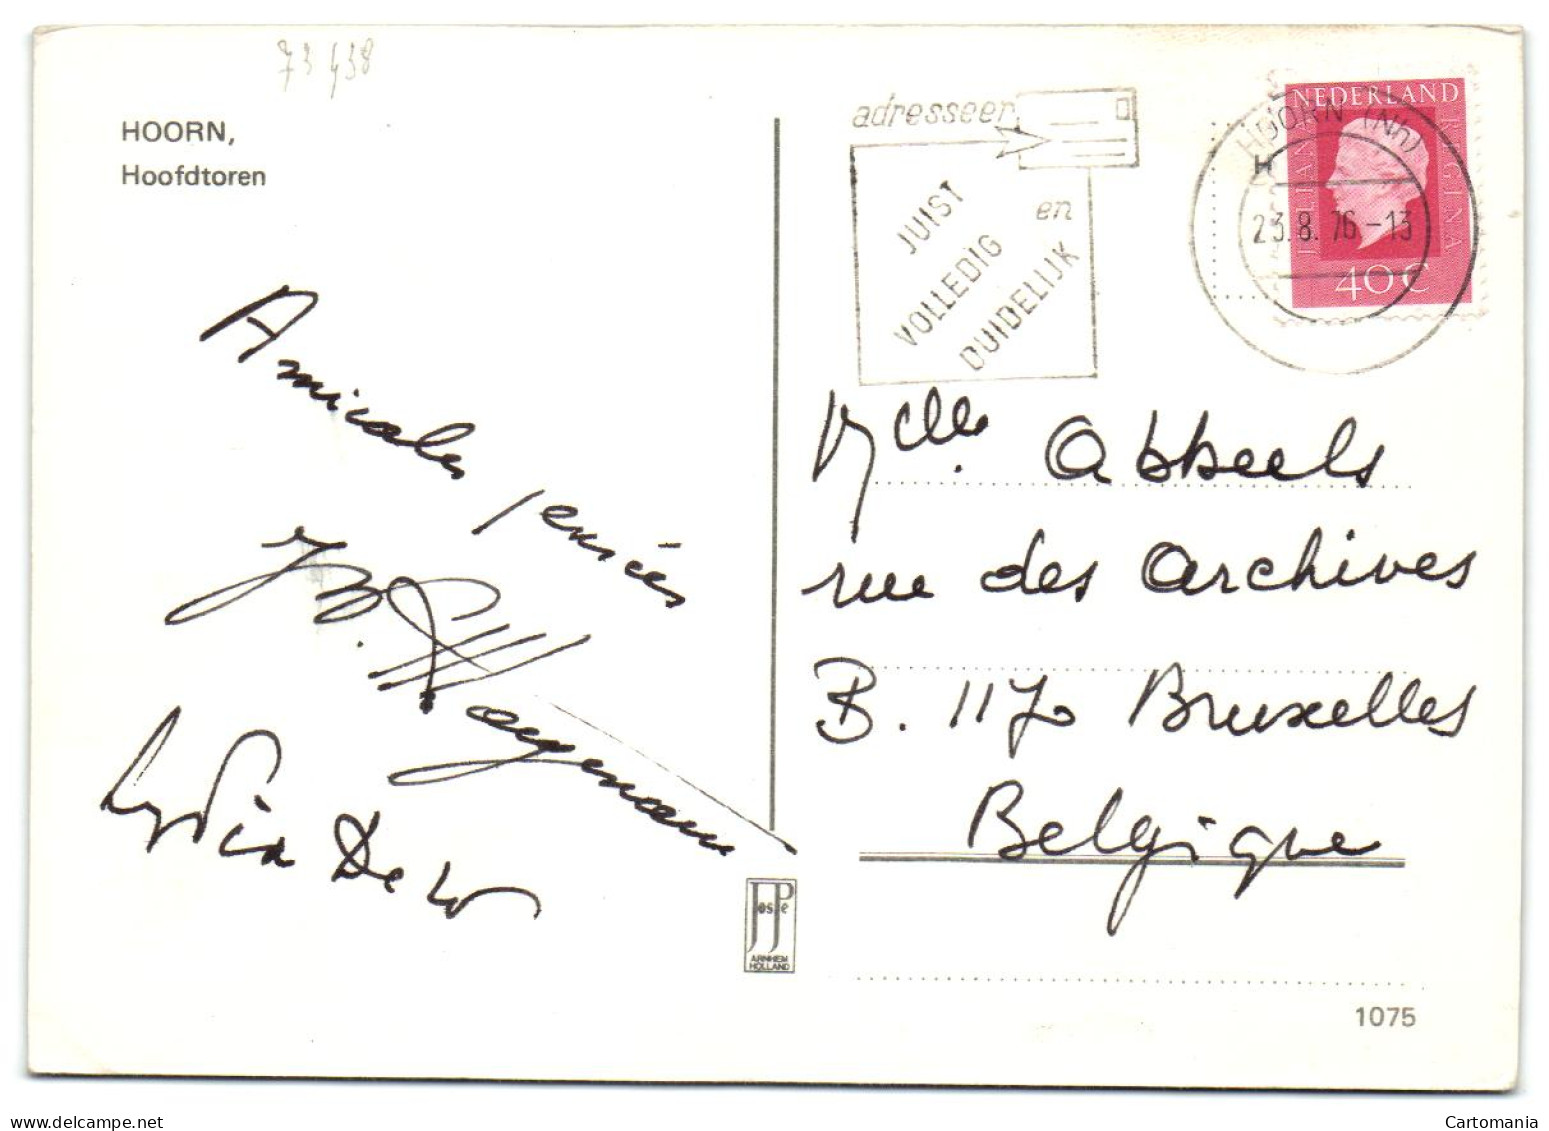 73 438
HOORN,
Hoofdtoren
adresseer
JUIST
en
VOLLEDIG
DUIDELIJK
NEDERLAND
JULIANA
REGINA
40 C
HOORN (Nh)
H
23.8.76-13
Amicales pensées
Lydia De
Melle. Abbeels
rue des Archives
B. 1170 Bruxelles
Belgique
JosPe
ARNHEM
HOLLAND
1075
Cartomania